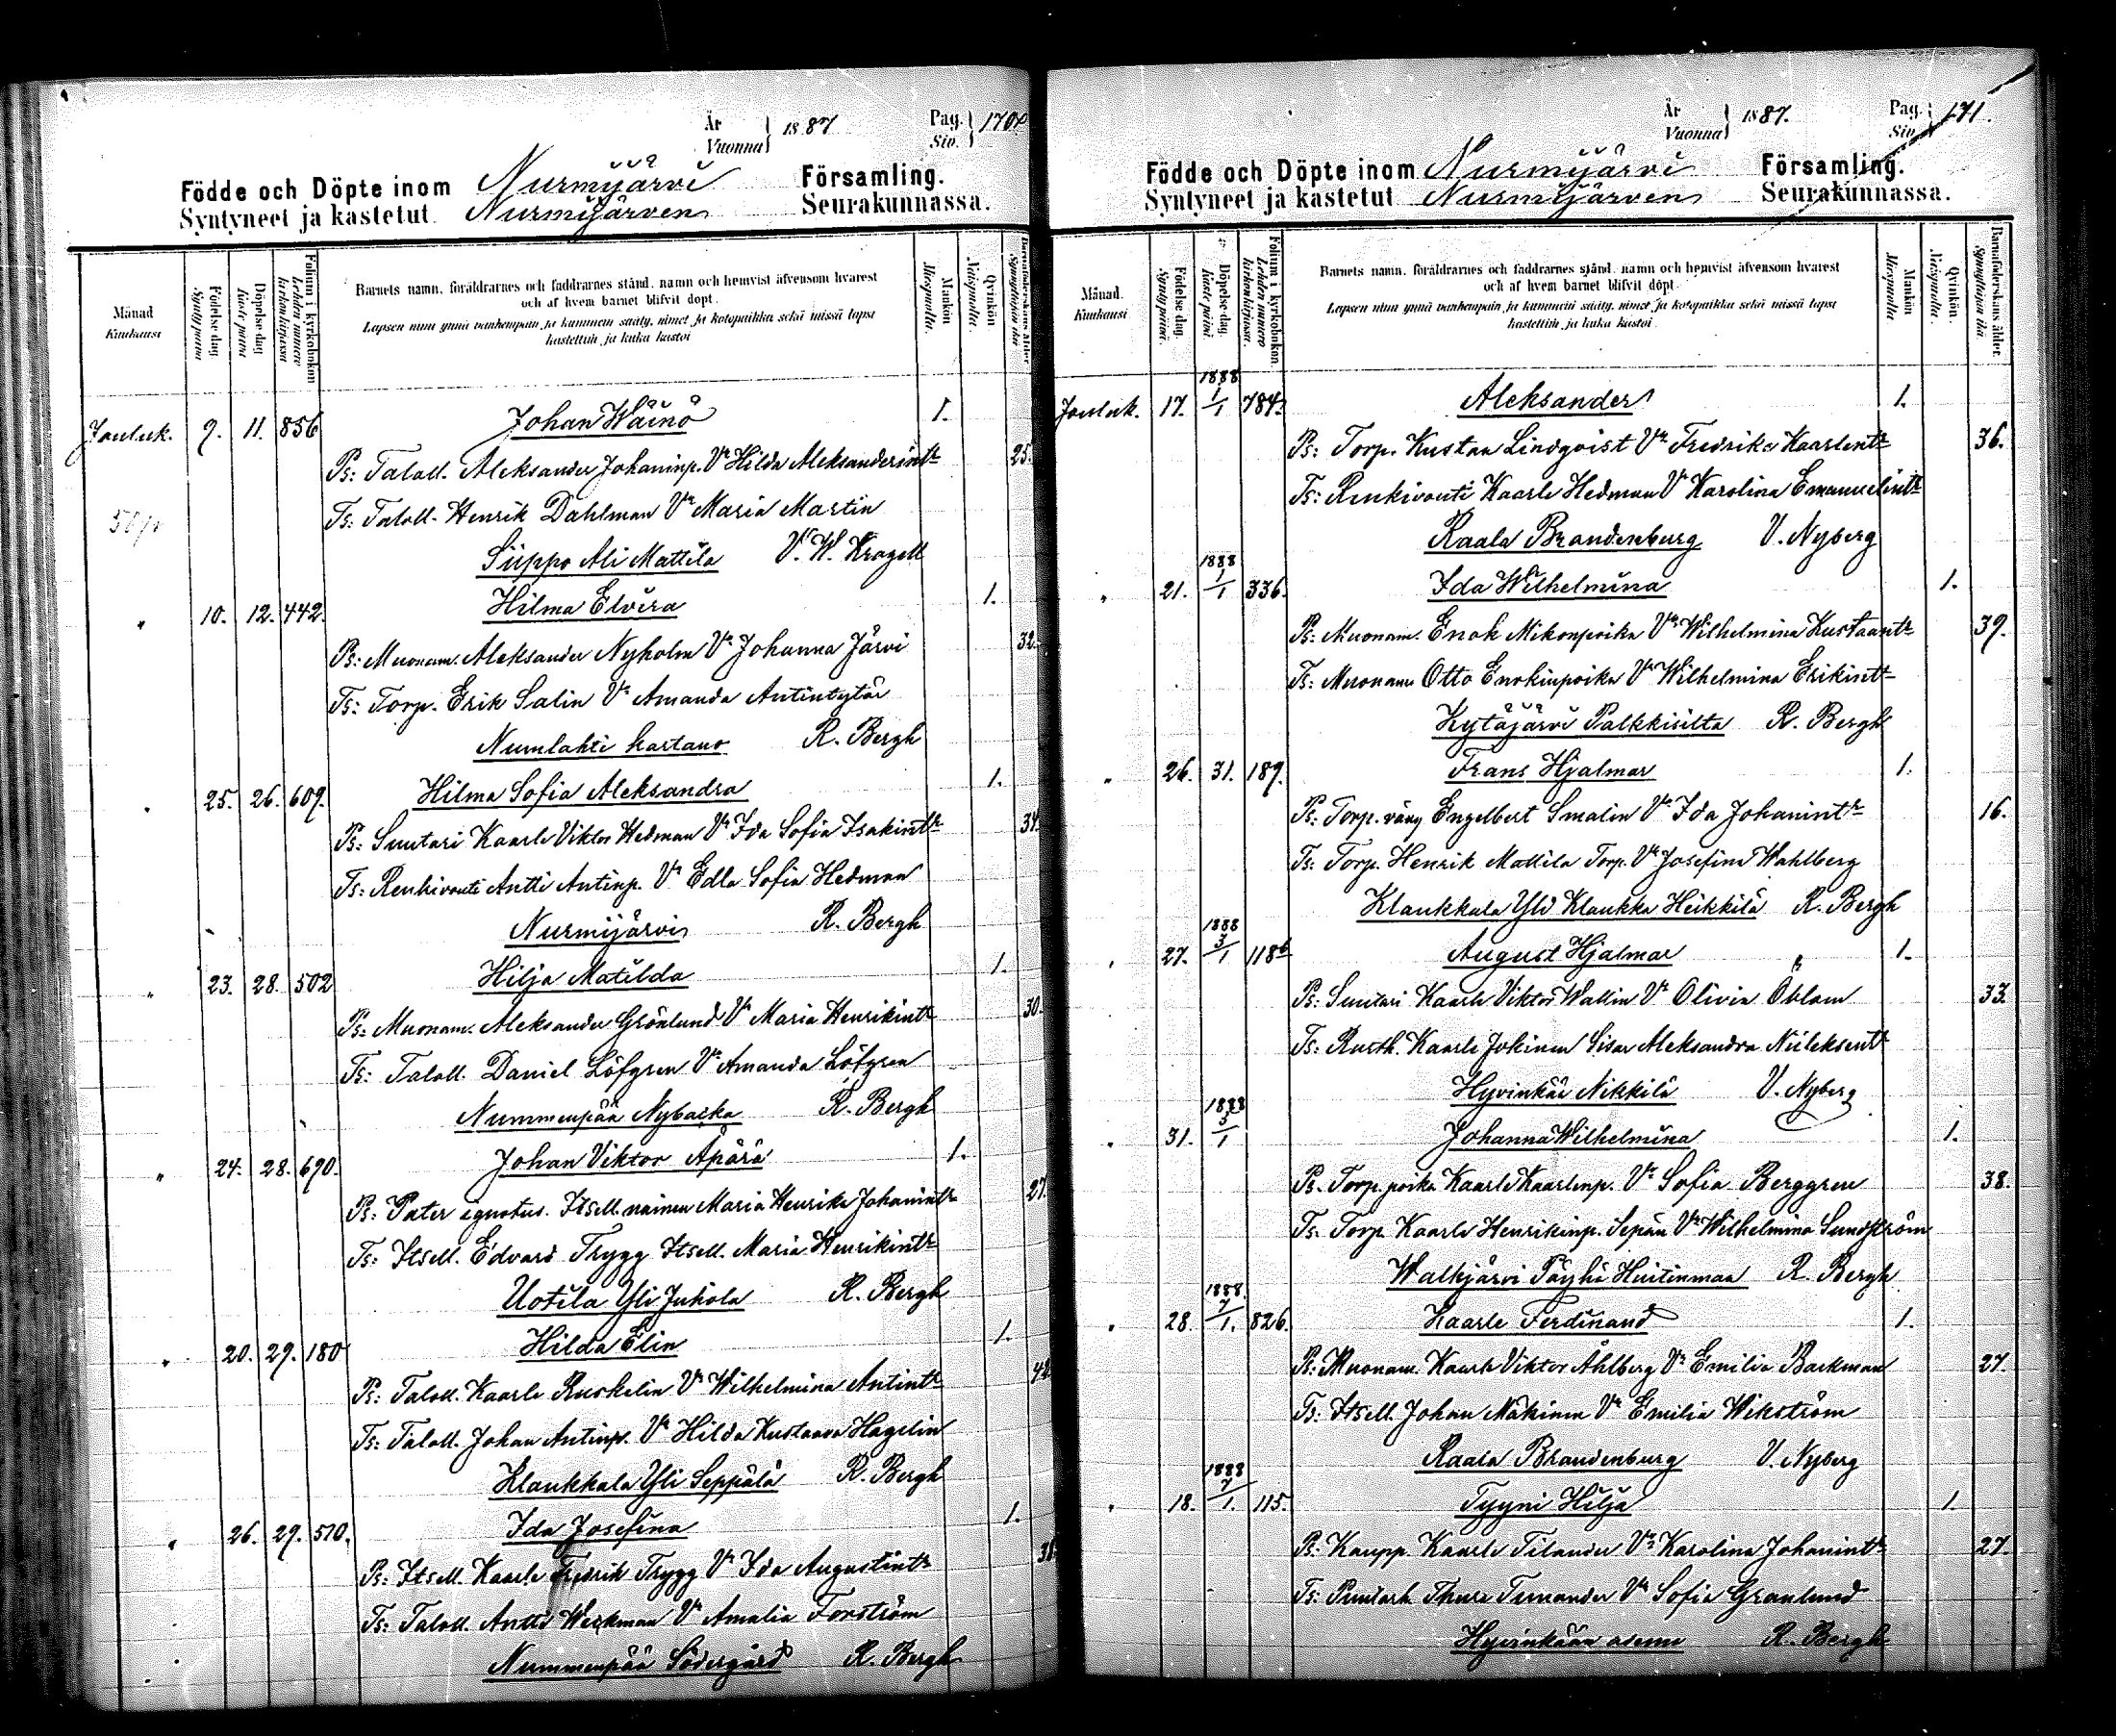 År
Vuonna
1887
Pag.
Siv.
170.
Födde och Döpte inom Nurmijärvi Församling.
Syntyneet ja kastetut Nurmijärven Seurakunnassa.
Månad
Kuukausi
Födelse dag
Synty päivä
Döpelse dag
Kaste päivä
Folium i kyrkoboken
Lehden numero kirkonkirjassa
Barnets namn, föräldrarnes och faddrarnes stånd, namn och hemvist äfvensom hvarest
och af hvem barnet blifvit döpt.
Lapsen nimi ynnä vanhempain ja kummein sääty, nimet ja kotopaikka sekä missä lapsi
kastettiin ja kuka kastoi
Mankön
Miespuolia.
Qvinkön
Naispuolia.
Barnaföderskans ålder
Synnyttäjän ikä
Jouluk. 9. 11. 856 Johan Wäinö 1.
Ps: Taloll. Aleksander Johaninp. Vo Hilda Aleksanderintr 25.
Ts: Taloll. Henrik Dahlman Vo Maria Martin
50 p
Siippo Ali Mattila V. W. Kragell
" 10. 12. 442. Hilma Elvira 1.
Ps: Muonam. Aleksander Nyholm Vo Johanna Järvi 32.
Ts: Torp. Erik Salin Vo Amanda Antintytär
Numlahti kartano R. Bergh
" 25. 26. 609. Hilma Sofia Aleksandra 1.
Ps: Suutari Kaarle Viktor Hedman Vo Ida Sofia Isakintr 34.
Ts: Renkivouti Antti Antinp. Vo Edla Sofia Hedman
Nurmijärvi R. Bergh
" 23. 28. 502 Hilja Matilda 1.
Ps: Muonam. Aleksander Grönlund Vo Maria Henrikintr 30.
Ts: Taloll. Daniel Löfgren Vo Amanda Löfgren
Nummenpää Nybacka R. Bergh
" 24. 28. 690. Johan Viktor Äpärä 1.
Ps: Pater ignotus. Itsell. nainen Maria Henrika Johanintr 27.
Ts: Itsell. Edvard Trygg Itsell. Maria Henrikintr
Uotila Yli Juhola R. Bergh
" 20. 29. 180 Hilda Elin 1.
Ps: Taloll. Kaarle Ruskelin Vo Wilhelmina Antintr 42
Ts: Taloll. Johan Antinp. Vo Hilda Kustaava Hagelin
Klaukkala Yli Seppälä R. Bergh
" 26. 29. 510. Ida Josefina 1.
Ps: Itsell. Kaarle Fredrik Trygg Vo Ida Augustintr
Ts: Taloll. Antti Werkman Vo Amalia Forström
Nummenpää Södergård R. Bergh
År
Vuonna
1887.
Pag.
Siv.
171.
Födde och Döpte inom Nurmijärvi Församling.
Syntyneet ja kastetut Nurmijärven Seurakunnassa.
Månad.
Kuukausi
Födelse dag.
Synty päivä.
Döpelse dag.
Kaste päivä.
Folium i kyrkoboken.
Lehden numero kirkonkirjassa.
Barnets namn, föräldrarnes och faddrarnes stånd, namn och hemvist äfvensom hvarest
och af hvem barnet blifvit döpt.
Lapsen nimi ynnä vanhempain ja kummein sääty, nimet ja kotopaikka sekä missä lapsi
kastettiin ja kuka kastoi.
Mankön
Miespuolia
Qvinkön.
Naispuolia.
Barnaföderskans ålder.
Synnyttäjän ikä.
Jouluk. 17. 1888 1/1 784. Aleksander 1.
Ps: Torp. Kustaa Lindqvist Vo Fredrika Kaarlentr 36.
Ts: Renkivouti Kaarle Hedman Vo Karolina Emanuelintr
Raala Brandenburg V. Nyberg
" 21. 1888 1/1 336. Ida Wilhelmina 1.
Ps: Muonam. Enok Mikonpoika Vo Wilhelmina Kustaantr 39.
Ts: Muonam Otto Enokinpoika Vo Wilhelmina Erikintr
Kytäjärvi Palkkisilta R. Bergh
" 26. 31. 189. Frans Hjalmar 1.
Ps: Torp. väny Engelbert Smalin Vo Ida Johanintr 16.
Ts: Torp. Henrik Mattila Torp. Vo Josefina Wahlberg
Klaukkala Yli Klaukka Heikkilä R. Bergh
" 27. 1888 3/1 1186 August Hjalmar 1.
Ps: Suutari Kaarle Viktor Wallin Vo Olivia Öblom 33.
Ts: Rusth. Kaarle Jokinen Sisar Aleksandra Niileksentr
Hyvinkää Nikkilä V. Nyberg
" 31. 1888 5/1 Johanna Wilhelmina 1.
Ps. Torp. poika Kaarle Kaarlenp. Vo Sofia Berggren 38.
Ts. Torp. Kaarle Henrikinp. Sepän Vo Wilhelmina Sundström
Walkjärvi Päyhä Huitinmaa R. Bergh
" 28. 1888. 7/1. 826. Kaarle Ferdinand 1.
Ps: Muonam. Kaarle Viktor Åhlberg Vo Emilia Backman 27.
Ts: Itsell. Johan Mäkinen Vo Emilia Wikström
Raala Brandenburg V. Nyberg
" 18. 1888 7/1. 115. Tyyni Hilja 1.
Ps: Kaupp. Kaarle Tilander Vo Karolina Johanintr 27.
Ts: Puutarh. Thure Timander Vo Sofia Granlund
Hyvinkään asema R. Bergh